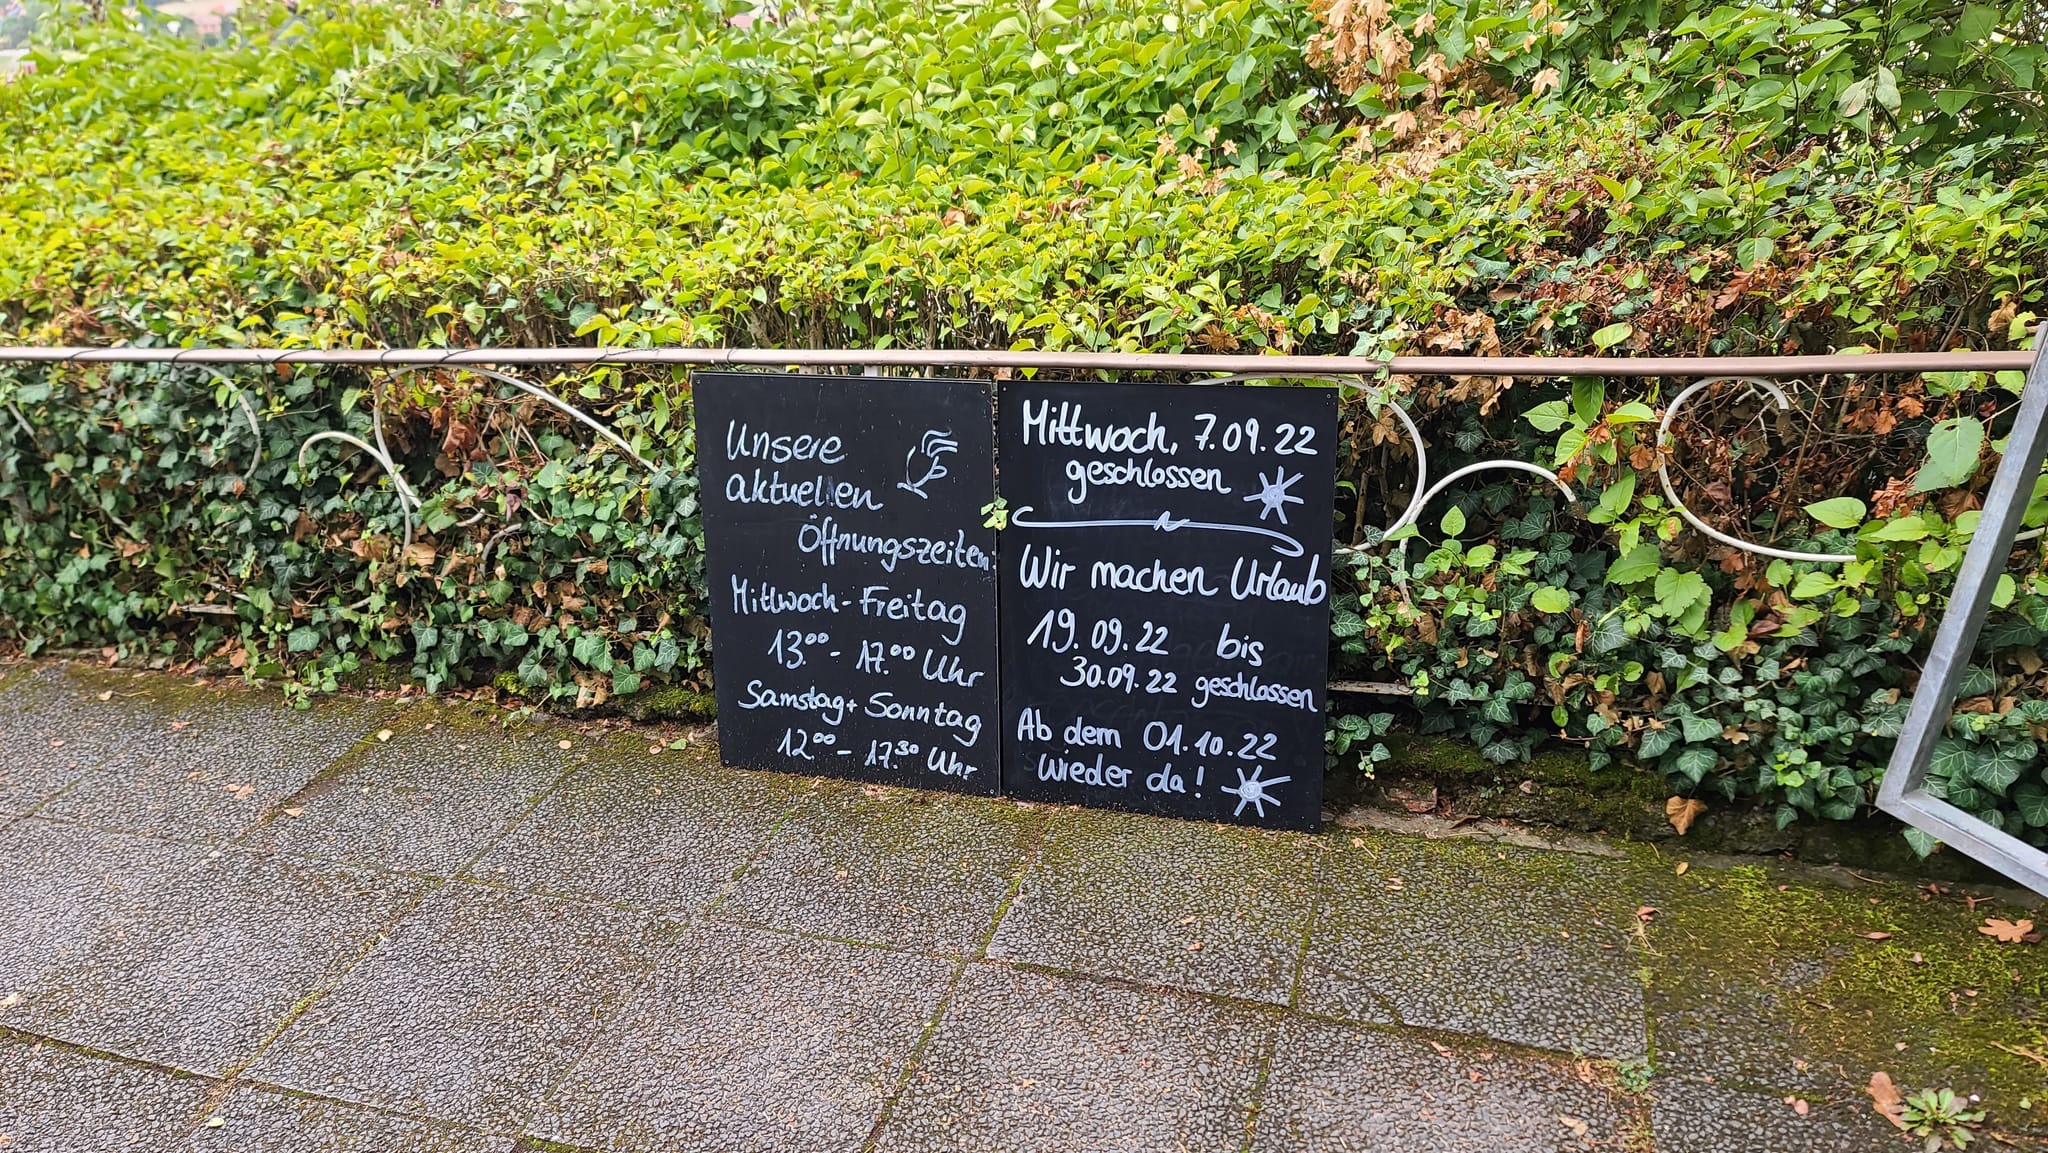 Unsere
aktuellen
Öffnungszeiten
Mittwoch - Freitag
13.00 - 17.00 Uhr
Samstag + Sonntag
12.00 - 17.30 Uhr
Mittwoch, 7.09.22
geschlossen
Wir machen Urlaub
19.09.22 bis
30.09.22 geschlossen
Ab dem 01.10.22
wieder da!